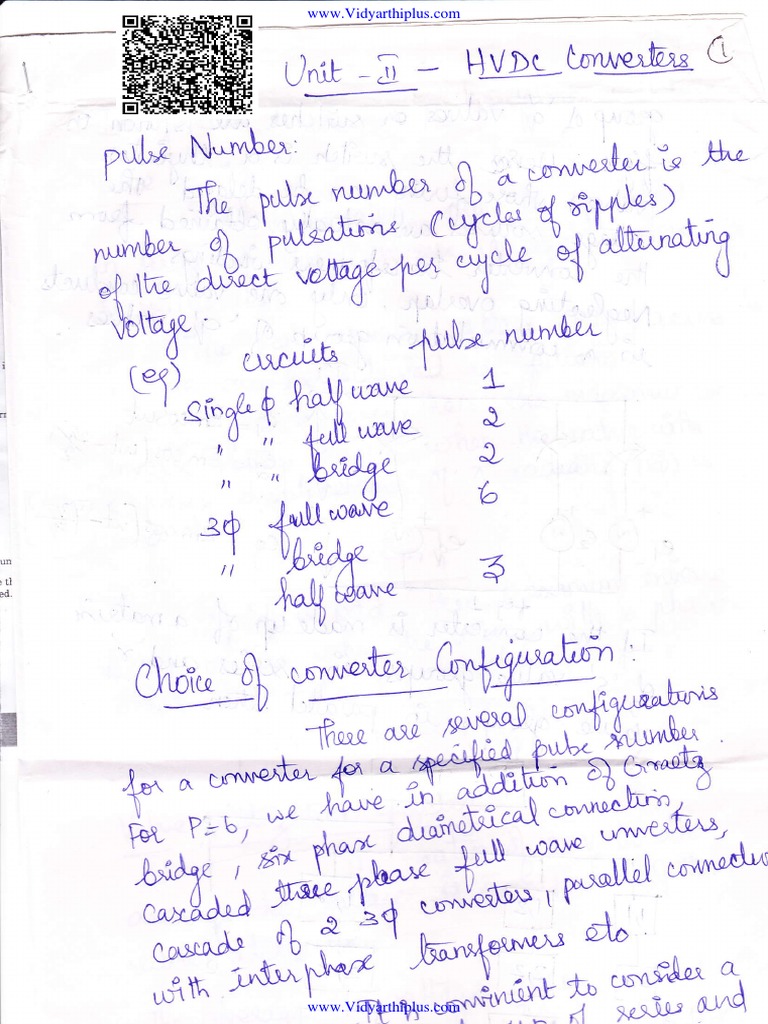 www.Vidyarthiplus.com
Unit - II - HVDC Converters 1
pulse Number:
The pulse number of a converter is the
number of pulsations (cycles of ripples)
of the direct voltage per cycle of alternating
voltage.
(eg) circuits pulse number
Single φ half wave 1
" " full wave 2
" " bridge 2
3φ full wave 6
" bridge
half wave 3
Choice of converter Configuration:
There are several configurations
for a converter for a specified pulse number.
For P=6, we have in addition of Graetz
bridge, six phase diametrical connection,
cascaded three phase full wave
cascade of 2 3φ converters, parallel
with interphase transformers etc
It is convinient to consider a
of series and
www.Vidyarthiplus.com